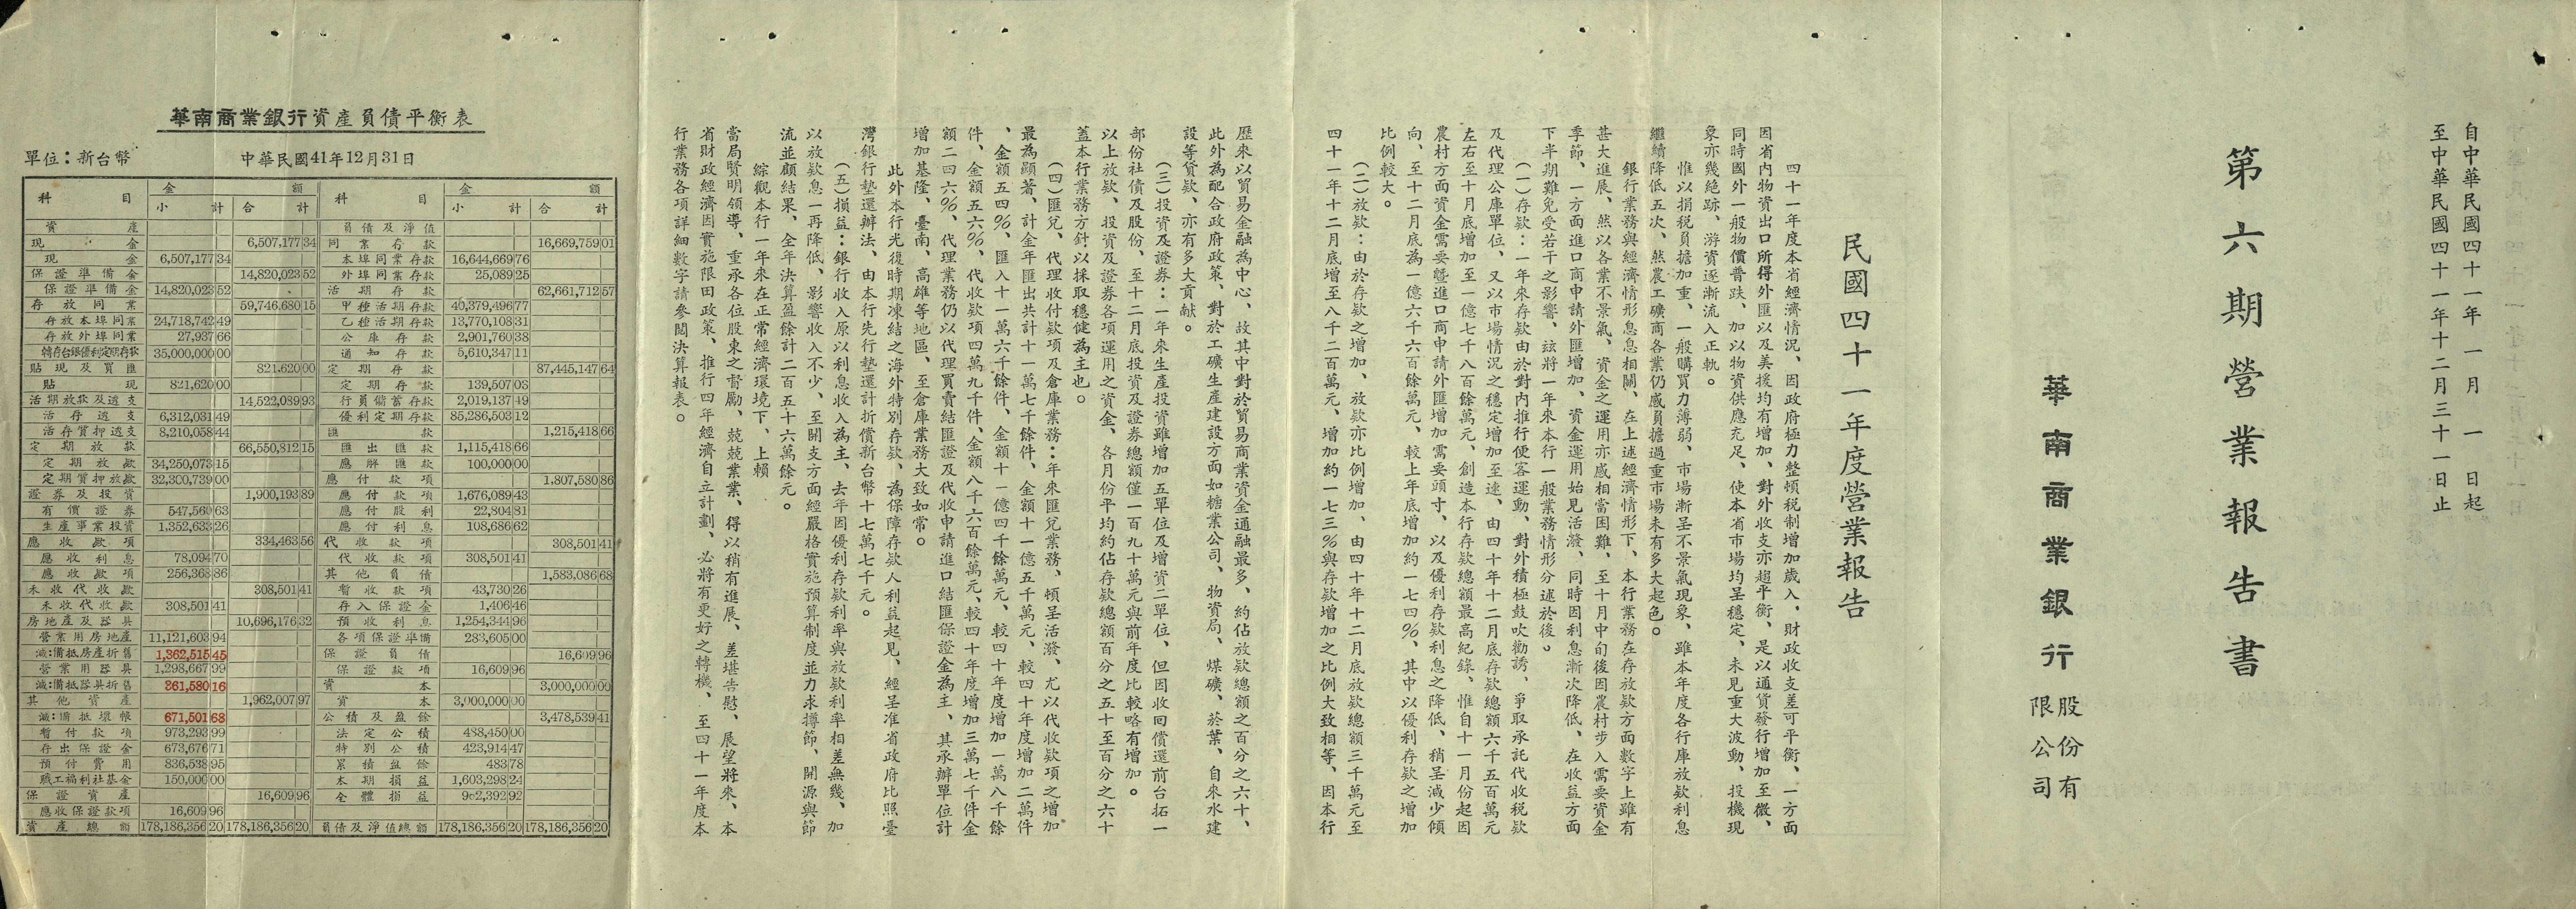 自中華民國四十一年一月一日起
至中華民國四十一年十二月三十一日止
第六期營業報告書
華南商業銀行股份有限公司
民國四十一年度營業報告
四十一年度本省經濟情況、因政府極力整頓稅制增加歲入、財政收支差可平衡、一方面
因省內物資出口所得外匯以及美援均有增加、對外收支亦趨平衡、是以通貨發行增加至微、
同時國外一般物價普跌、加以物資供應充足、使本省市場均呈穩定、未見重大波動、投機現
象亦幾絕跡、游資逐漸流入正軌。
惟以捐稅負擔加重、一般購買力薄弱、市場漸呈不景氣現象、雖本年度各行庫放款利息
繼續降低五次、然農工礦商各業仍感負擔過重市場未有多大起色。
銀行業務與經濟情形息息相關、在上述經濟情形下、本行業務在存放款方面數字上雖有
甚大進展、然以各業不景氣、資金之運用亦感相當困難、至十月中旬後因農村步入需要資金
季節、一方面進口商申請外匯增加、資金運用始見活潑、同時因利息漸次降低、在收益方面
下半期難免受若干之影響、茲將一年來本行一般業務情形分述於後。
(一)存款：一年來存款由於對內推行便客運動、對外積極鼓吹勸誘、爭取承託代收稅款
及代理公庫單位、又以市場情況之穩定增加至速、由四十年十二月底存款總額六千五百萬元
左右至十月底增加至一億七千八百餘萬元、創造本行存款總額最高紀錄、惟自十一月份起因
農村方面資金需要暨進口商申請外匯增加需要頭寸、以及優利存款利息之降低、稍呈減少傾
向、至十二月底為一億六千六百餘萬元、較上年底增加約一七四%、其中以優利存款之增加
比例較大。
(二)放款：由於存款之增加、放款亦比例增加、由四十年十二月底放款總額三千萬元至
四十一年十二月底增至八千二百萬元、增加約一七三%與存款增加之比例大致相等、因本行
歷來以貿易金融為中心、故其中對於貿易商業資金通融最多、約佔放款總額之百分之六十、
此外為配合政府政策、對於工礦生產建設方面如糖業公司、物資局、煤礦、菸葉、自來水建
設等貸款、亦有多大貢献。
(三)投資及證券：一年來生產投資雖增加五單位及增資二單位、但因收回償還前台拓一
部份社債及股份、至十二月底投資及證券總額僅一百九十萬元與前年度比較略有增加。
以上放款、投資及證券各項運用之資金、各月份平均約佔存款總額百分之五十至百分之六十
蓋本行業務方針以採取穩健為主也。
(四)匯兌、代理收付款項及倉庫業務：年來匯兌業務、頓呈活潑、尤以代收款項之增加
最為顯著、計全年匯出共計十一萬七千餘件、金額十一億五千萬元、較四十年度增加二萬件
、金額五四%、匯入十一萬六千餘件、金額十一億四千餘萬元、較四十年度增加一萬八千餘
件、金額五六%、代收款項四萬九千件、金額八千六百餘萬元、較四十年度增加三萬七千件金
額二四六%、代理業務仍以代理買賣結匯證及代收申請進口結匯保證金為主、其承辦單位計
增加基隆、臺南、高雄等地區、至倉庫業務大致如常。
此外本行光復時期凍結之海外特別存款、為保障存款人利益起見、經呈准省政府比照臺
灣銀行墊還辦法、由本行先行墊還計折償新台幣十七萬七千元。
(五)損益：銀行收入原以利息收入為主、去年因優利存款利率與放款利率相差無幾、加
以放款息一再降低、影響收入不少、至開支方面經嚴格實施預算制度並力求撙節、開源與節
流並顧結果、全年決算盈餘計二百五十六萬餘元。
綜觀本行一年來在正常經濟環境下、上賴
當局賢明領導、重承各位股東之督勵、兢兢業業、得以稍有進展、差堪告慰、展望將來、本
省財政經濟因實施限田政策、推行四年經濟自立計劃、必將有更好之轉機、至四十一年度本
行業務各項詳細數字請參閱決算報表。
華南商業銀行資產負債平衡表
單位：新台幣 中華民國41年12月31日
科目 金額 科目 金額
小計 合計 小計 合計
資產 負債及淨值
現金 6,507,177 34 同業存款 16,669,759 01
現金 6,507,177 34 本埠同業存款 16,644,669 76
保證準備金 14,820,023 52 外埠同業存款 25,089 25
保證準備金 14,820,023 52 活期存款 62,661,712 57
存放同業 59,746,680 15 甲種活期存款 40,379,496 77
存放本埠同業 24,718,742 49 乙種活期存款 13,770,108 31
存放外埠同業 27,937 66 公庫存款 2,901,760 38
轉存台銀優利定期存款 35,000,000 00 通知存款 5,610,347 11
貼現及買匯 821,620 00 定期存款 87,445,147 64
貼現 821,620 00 定期存款 139,507 03
活期放款及透支 14,522,089 93 行員儲蓄存款 2,019,137 49
活存透支 6,312,031 49 優利定期存款 85,286,503 12
活存質押透支 8,210,058 44 匯款 1,215,418 66
定期放款 66,550,812 15 匯出匯款 1,115,418 66
定期放款 34,250,073 15 應解匯款 100,000 00
定期質押放款 32,300,739 00 應付款項 1,807,580 86
證券及投資 1,900,193 89 應付款項 1,676,089 43
有價證券 547,560 63 應付股利 22,804 81
生產事業投資 1,352,633 26 應付利息 108,686 62
應收款項 334,463 56 代收款項 308,501 41
應收利息 78,094 70 代收款項 308,501 41
應收款項 256,368 86 其他負債 1,583,086 68
未收代收款 308,501 41 暫收款項 43,730 26
未收代收款 308,501 41 存入保證金 1,406 46
房地產及器具 10,696,176 32 預收利息 1,254,344 96
營業用房地產 11,121,603 94 各項保證準備 283,605 00
減:備抵房產折舊 1,362,515 45 保證負債 16,609 96
營業用器具 1,298,667 99 保證款項 16,609 96
減:備抵器具折舊 361,580 16 資本 3,000,000 00
其他資產 1,962,007 97 資本 3,000,000 00
減:備抵壞帳 671,501 68 公積及盈餘 3,478,539 41
暫付款項 973,293 99 法定公積 488,450 00
存出保證金 673,676 71 特別公積 423,914 47
預付費用 836,538 95 累積盈餘 483 78
職工福利社基金 150,000 00 本期損益 1,603,298 24
保證資產 16,609 96 全體損益 962,392 92
應收保證款項 16,609 96
資產總額 178,186,356 20 178,186,356 20 負債及淨值總額 178,186,356 20 178,186,356 20